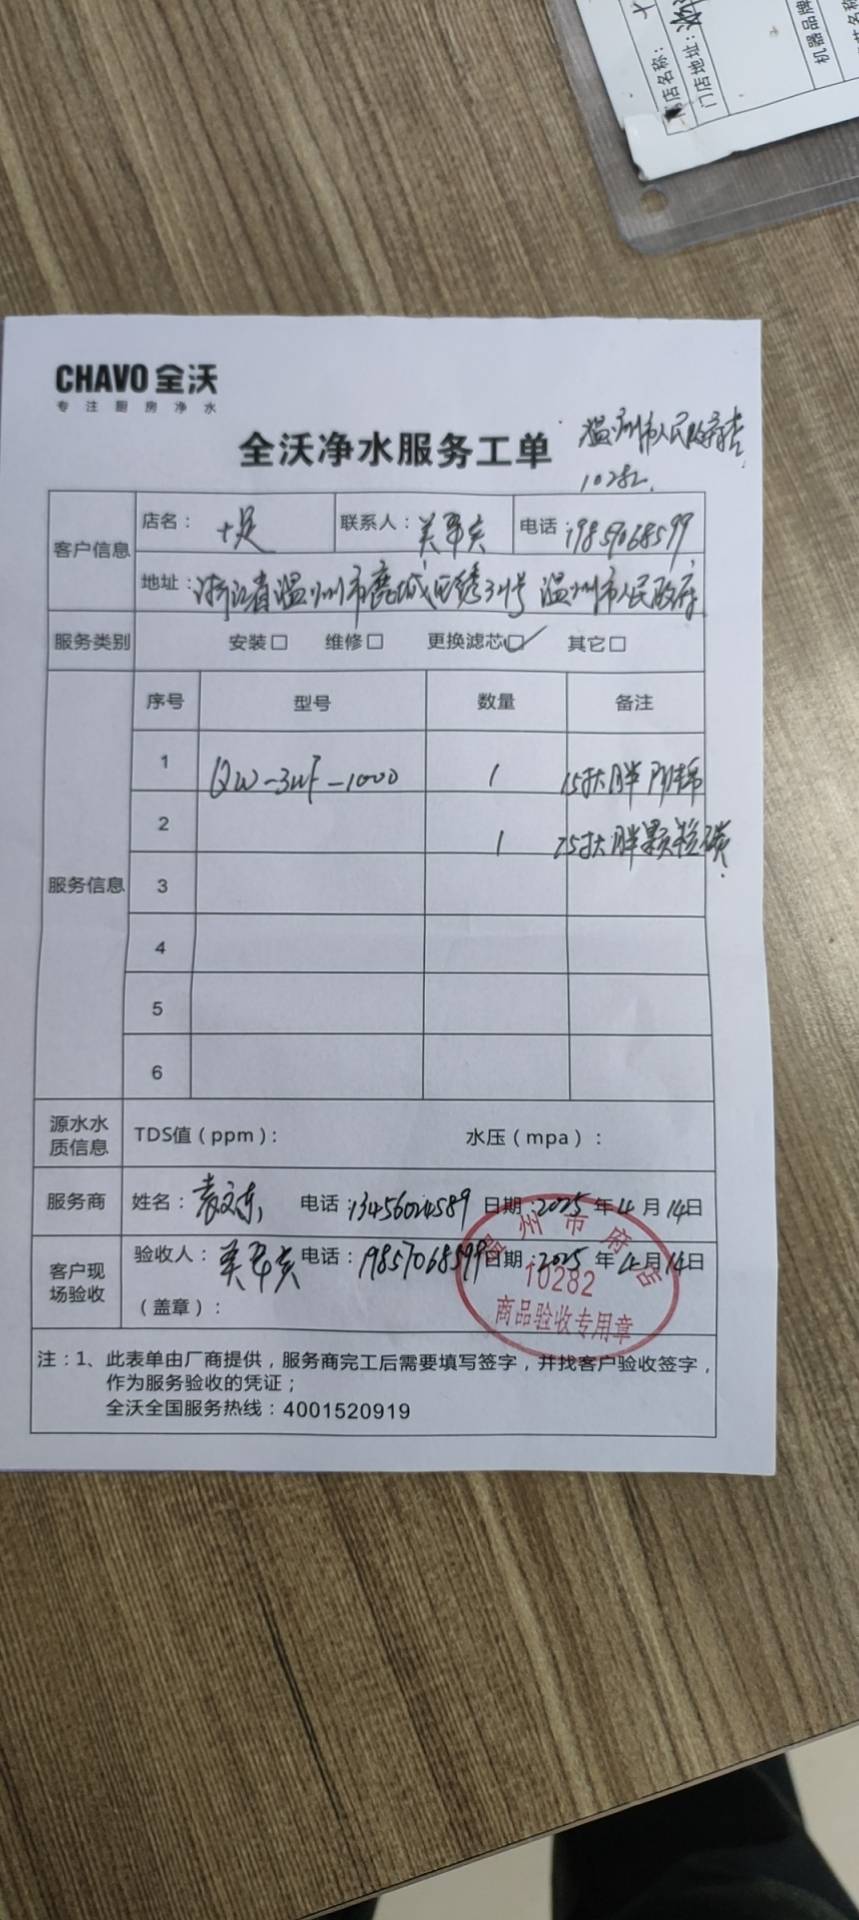 店名称：
门店地址：
机器品牌
CHAVO 全沃
专注厨房净水
全沃净水服务工单
温州市人民政府店
10282.
客户信息
店名：十足
联系人：
电话：19857068599
地址：浙江省温州市鹿城区 温州市人民政府
服务类别
安装□ 维修□ 更换滤芯☑ 其它□
服务信息
序号 型号 数量 备注
1 QW-3UF-1000 1 15寸大胖PP棉
2 1 25寸大胖颗粒碳
3
4
5
6
源水水质信息
TDS值（ppm）： 水压（mpa）：
服务商
姓名：袁文东 电话：13456024589 日期：2025年4月14日
客户现场验收
验收人： 电话：19857068599 日期：2025年4月14日
（盖章）：
温州市府店
10282
商品验收专用章
注：1、此表单由厂商提供，服务商完工后需要填写签字，并找客户验收签字，
作为服务验收的凭证；
全沃全国服务热线：4001520919